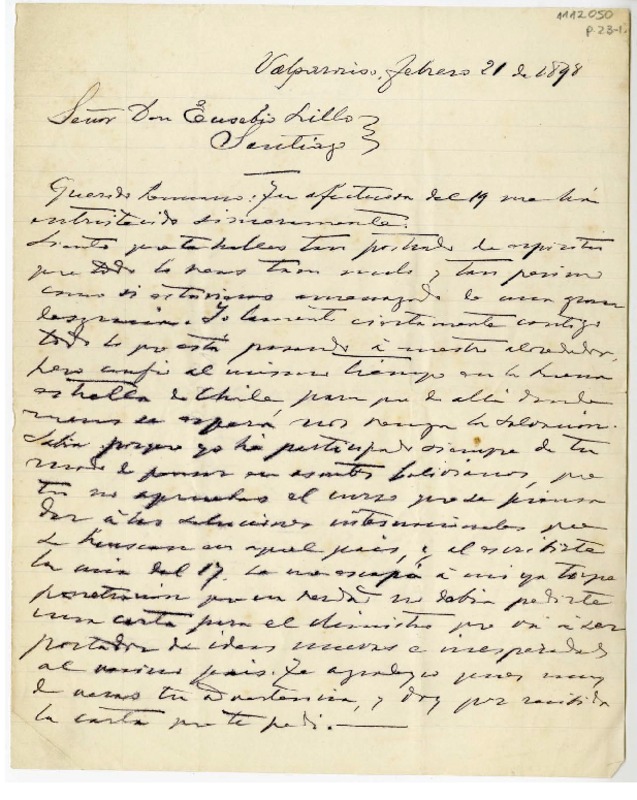 1112050
P. 23-1.
Valparaiso, febrero 21 de 1898
Señor Don Eusebio Lillo
Santiago
Querido hermano: Tu afectuosa del 19 me ha
entristecido sinceramente.
Siento que te halles tan postrado de espiritu
que todo lo veas tan malo y tan
como si estuvieras amenazado de una gran
desgracia. Yo lamento ciertamente contigo
todo lo que está pasando á nuestro alrededor,
pero confio al mismo tiempo en la buena
estrella de Chile para que de allí donde
menos se espera, nos venga la salvacion.
Sabia porque yo he participado siempre de tu
modo de pensar en asuntos bolivianos, que
tu no apruebas el curso que se piensa
dar á las soluciones internacionales que
se buscan en aquel pais, y al escribirte
la mia del 17 se me escapó á mi ya torpe
penetracion que en verdad no debia pedirte
una carta para el Ministro que vá á ser
portador de ideas nuevas e inesperadas
al vecino pais. Te agradezco pues muy
de veras tu advertencia, y doy por recibida
la carta que te pedi.